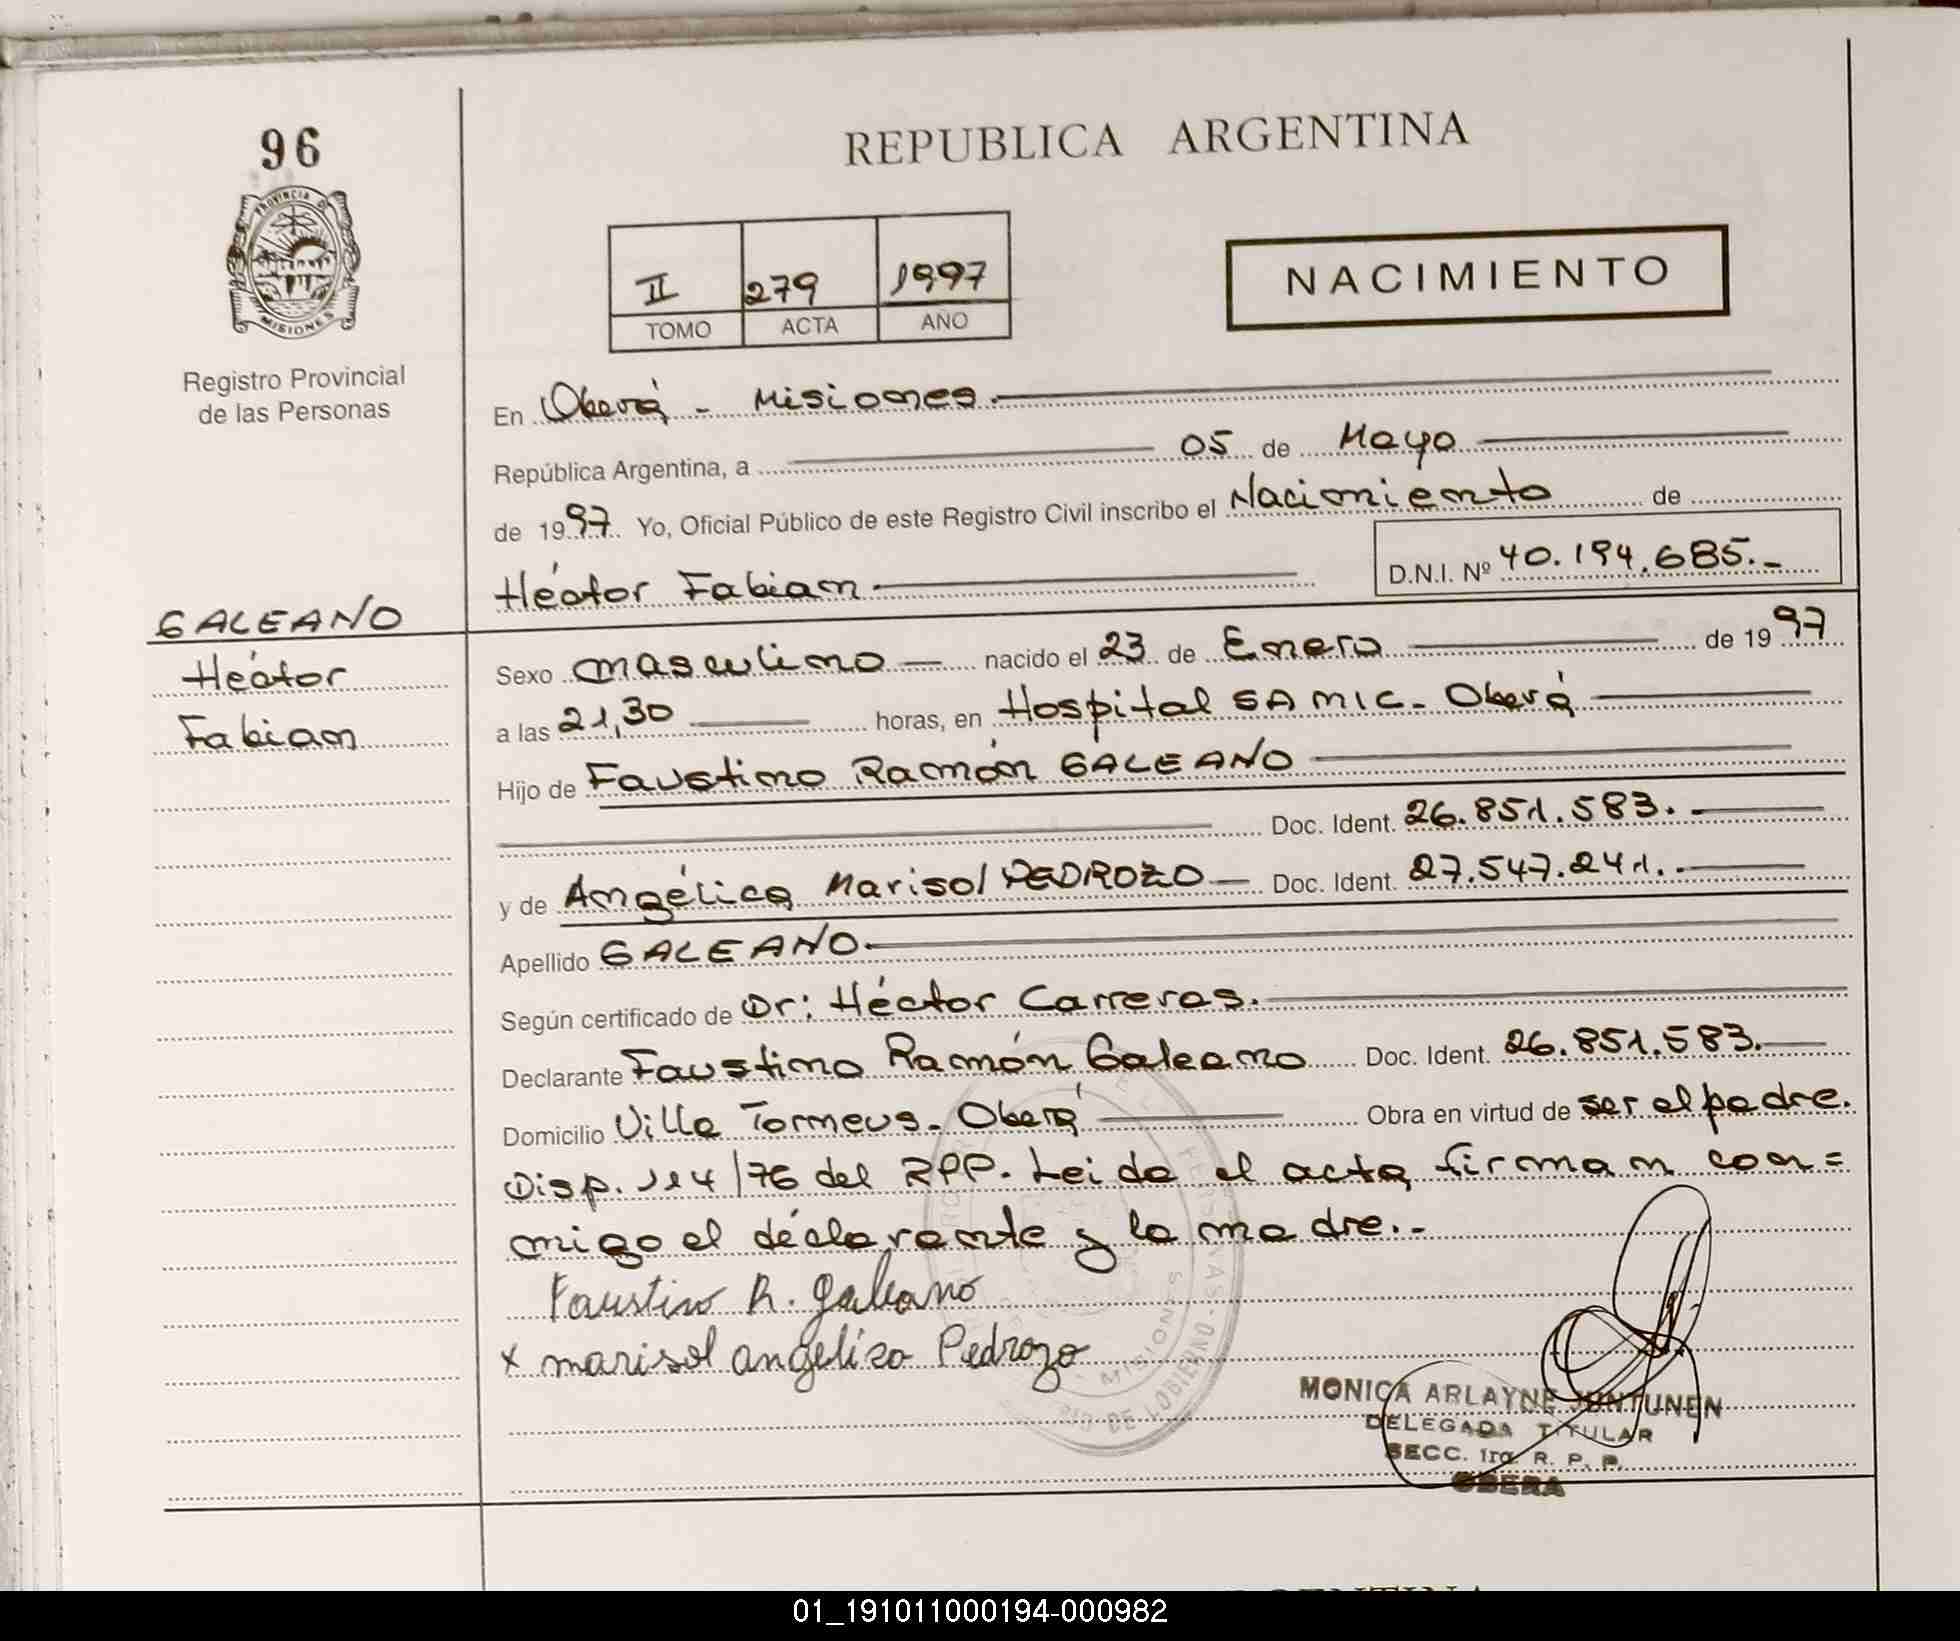 96
REPUBLICA ARGENTINA
PROVINCIA D MISIONES
Registro Provincial
de las Personas
II 279 1997
TOMO ACTA AÑO
NACIMIENTO
En Oberá - Misiones.
República Argentina, a 05 de Mayo
de 1997 Yo, Oficial Público de este Registro Civil inscribo el Nacimiento de
Héctor Fabian D.N.I. Nº 40.194.685.-
GALEANO
Héctor
Fabian
Sexo masculino nacido el 23 de Enero de 1997
a las 21,30 horas, en Hospital SAMIC. Oberá
Hijo de Faustino Ramón GALEANO
Doc. Ident. 26.851.583.
y de Angélica Marisol PEDROZO Doc. Ident. 27.547.241.
Apellido GALEANO
Según certificado de Dr: Héctor Carreras.
Declarante Faustino Ramón Galeano Doc. Ident. 26.851.583.
Domicilio Villa Torneus. Oberá Obra en virtud de ser el padre.
Disp. 114/76 del RPP. Leida el acta firman con=
migo el declarante y la madre.-
Faustino R. Galeano
x marisol angelica Pedrozo
MISIONES
MONICA ARLAYNE JUNTUNEN
DELEGADA TITULAR
SECC. 1ra R. P. P.
OBERA
01_191011000194-000982